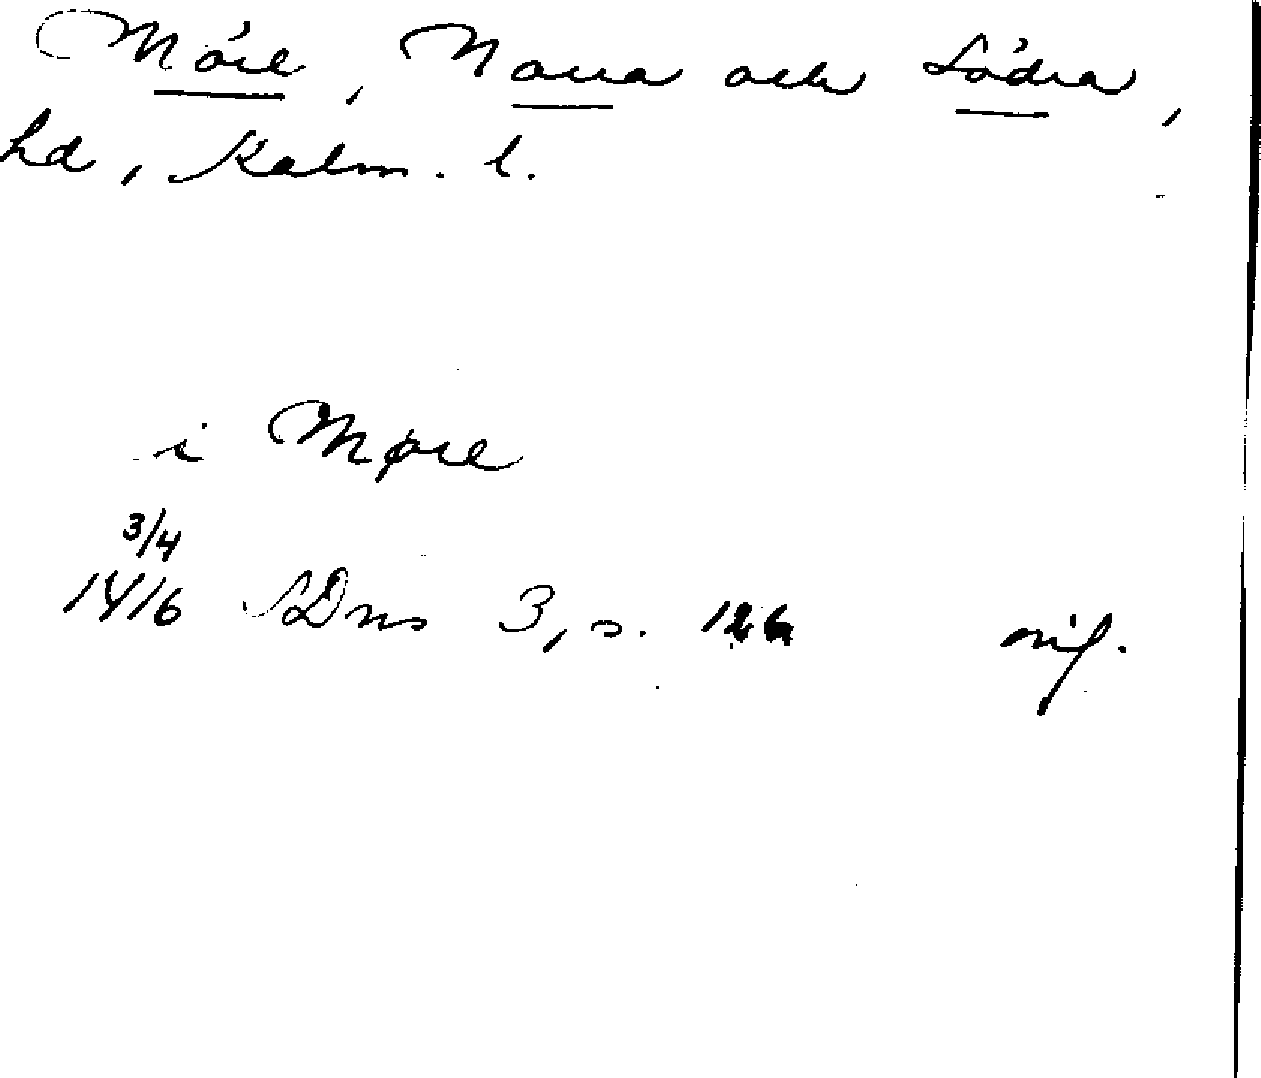 Möre, Norra och Södra,
hd, Kalm. l.
i Møre
3/4
1416 SDns 3, s. 126